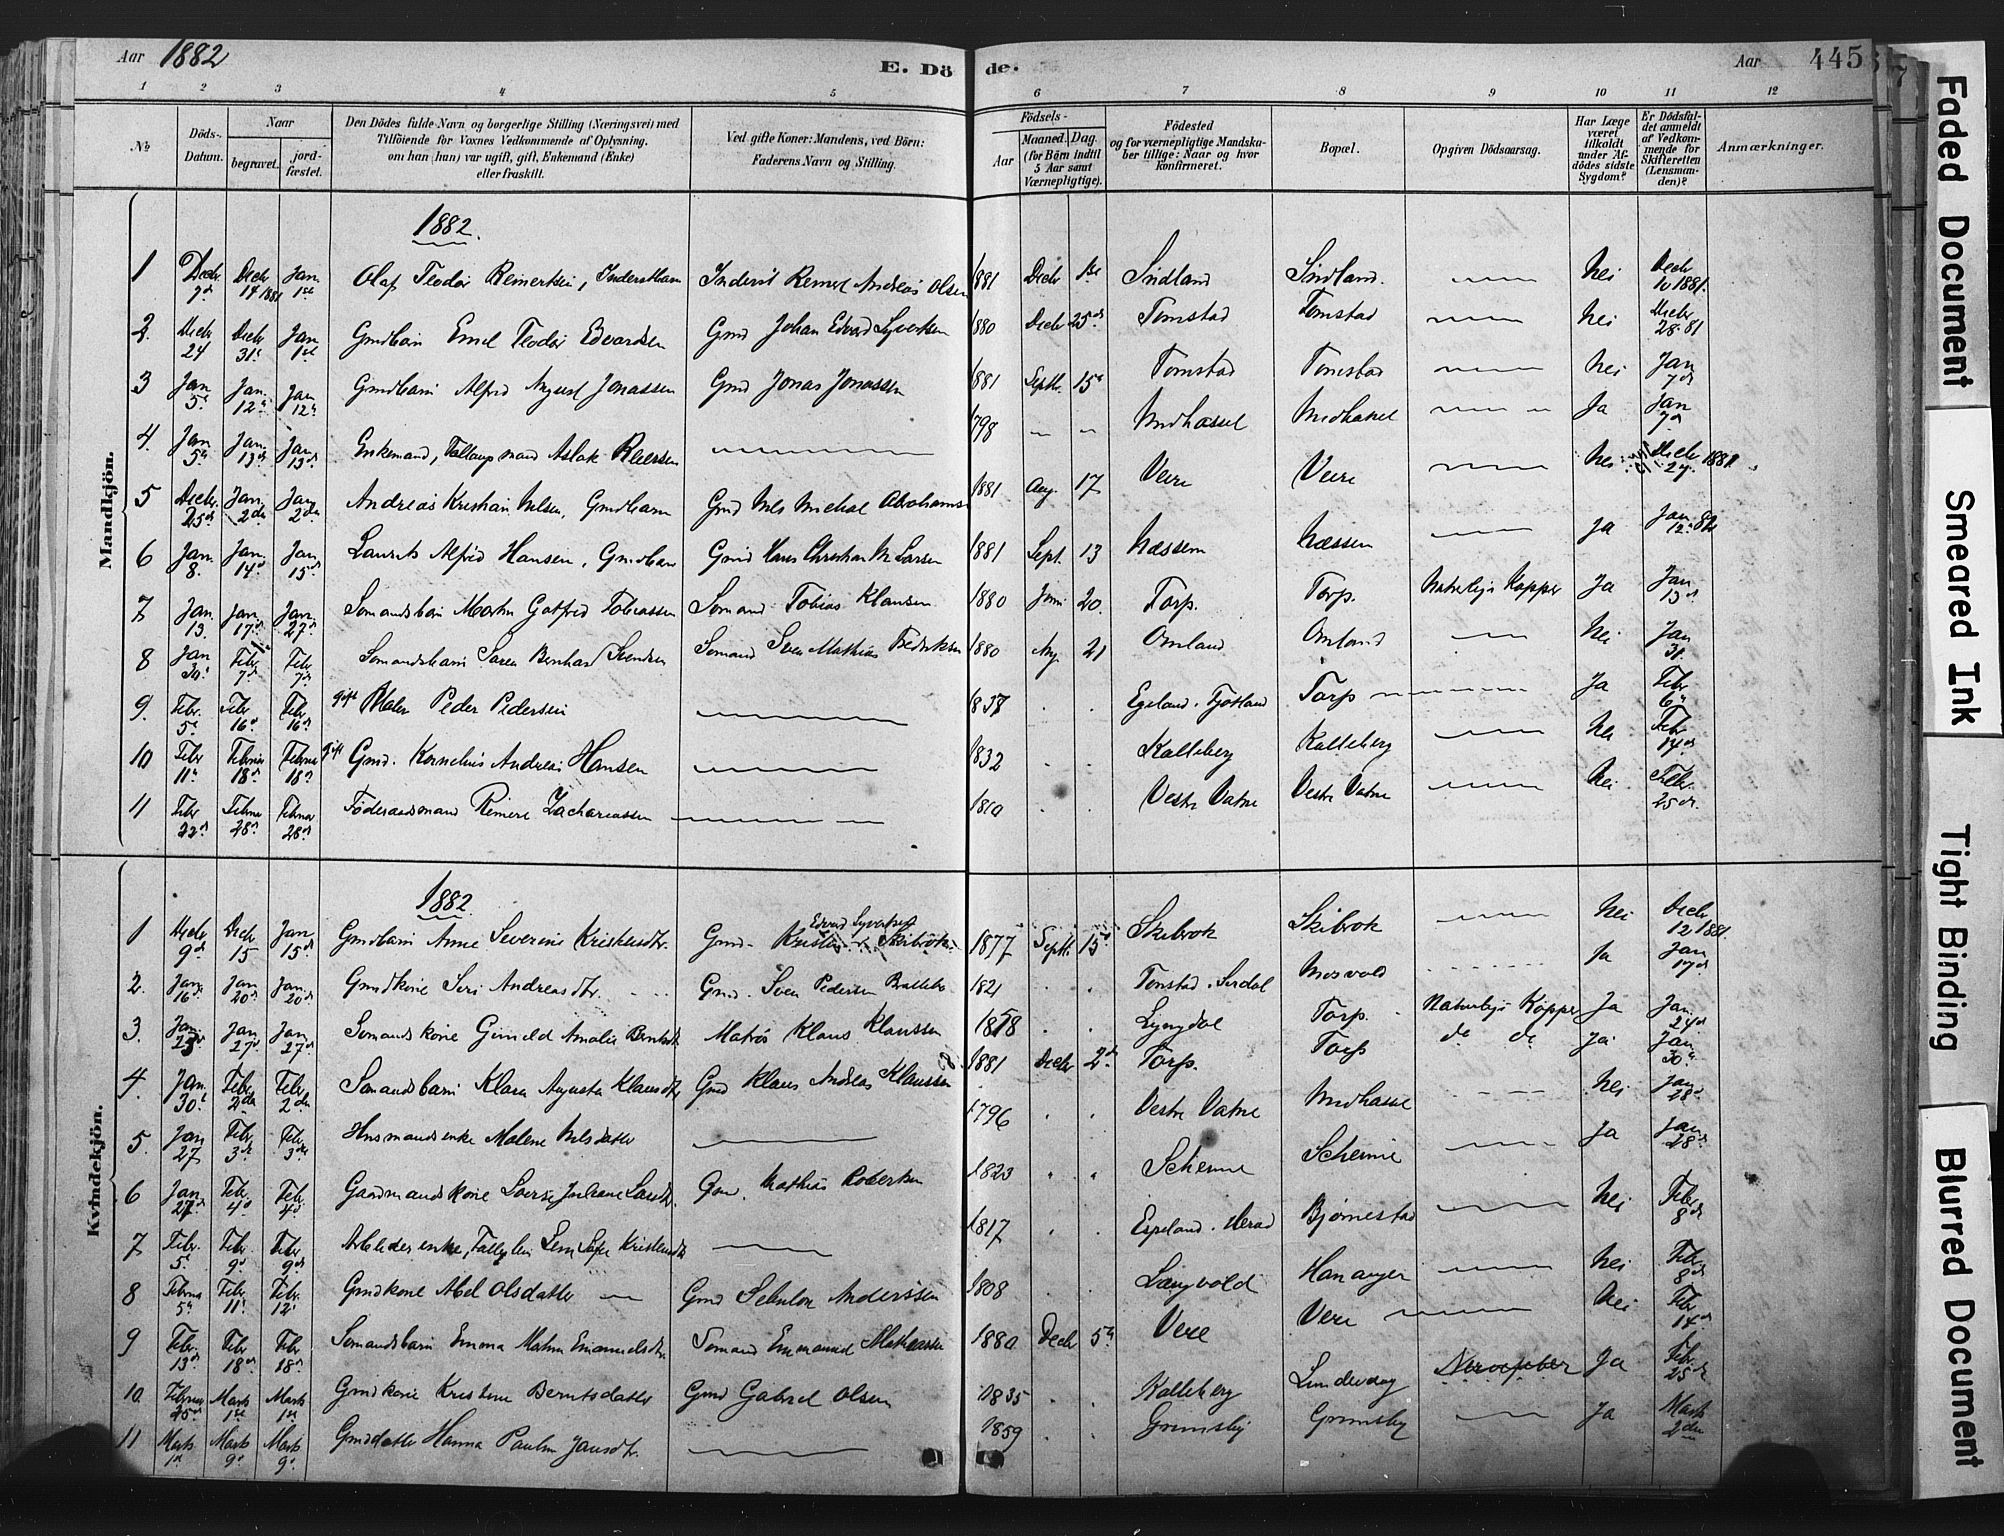 Aar 1882
E. Dö de.
Aar 445
1 2 3 4 5 6 7 8 9 10 11 12
№
Döds-Datum.
Naar
begravet.
jord-fæstet.
Den Dödes fulde Navn og borgerlige Stilling (Næringsvei) med
Tilföiende for Voxnes Vedkommende af Oplysning,
om han (hun) var ugift, gift, Enkemand (Enke)
eller fraskilt.
Ved gifte Koner: Mandens, ved Börn:
Faderens Navn og Stilling.
Födsels-
Aar
Maaned. Dag.
(for Börn indtil
5 Aar samt
Værnepligtige).
Födested
og for værnepligtige Mandska-
ber tillige: Naar og hvor
konfirmeret.
Bopæl.
Opgiven Dödsaarsag.
Har Læge
været
tilkaldt
under Af-
dödes sidste
Sygdom?
Er Dödsfal-
det anmeldt
af Vedkom-
mende for
Skifteretten
(Lensman-
den)?
Anmærkninger.
Mandkjön.
1882.
1 Decbr 7d Decbr 14 1881 Jan 1st Olaf Teodor Reinertsen, Inderstbarn Inderst Reinert Andreas Olsen 1881 Decbr 1st Sindland Sindland. Nei Decbr 10 1881.
2. Decbr 24 Decbr 31t Jan 1st Gmdbarn Emil Teodor Edvardsen Gmd Johan Edvard Syvertsen 1880 Decbr 25d Tomstad Tomstad Nei Decbr 28-81
3 Jan 5t Jan. 12t Jan 12t Gmdbarn Alfred August Jonassen Gmd Jonas Jonassen 1881 Septb. 15t Tomstad Tomstad Nei Jan 7d
4. Jan 5t Jan 13d Jan 13d Enkemand, Aslak Reiersen 1798 Midhassel Midhassel Ja Jan 7d
5 Decbr. 25d Jan. 2den Jan 2den Andreas Kristian Nilsen, Gmdbarn Gmd Nils Michal Abrahams 1881 Aug. 17 Vere Vere Nei Decbr 27. 1881.
6 Jan 8. Jan. 14d Jan 15d Laurits Alfred Hansen, Gmdbarn Gmd Hans Christian N. Larsen 1881 Sept. 13 Næssem Næssem Ja Jan 12t 82
7 Jan. 13. Jan. 17d Jan. 27d Sømandsbarn Martin Gotfred Tobiassen Sømand Tobias Klausen 1880 Juni 20. Torp. Torp. Naturlige Kopper Ja Jan 13d
8 Jan 30t Febr 7d Febr. 7d Sømandsbarn Søren Bernhard Svendsen Sømand Sven Mathias Fredriksen 1880 Aug. 21 Omland Omland Nei Jan 31.
9. Febr. 5t Febr. 16d Febr 16d gift Maler Peder Pedersen 1837 Egeland. Fjotland Torp Ja Febr 6t
10 Febr 11t Februar 18d Februar 18d gift Gmd. Kornelius Andreas Hansen 1832 Kalleberg Kalleberg Nei Febr 14d
11 Febr 22d Februar 28d Februar 28d Føderaadsmand Reinert Zachariassen 1810 Vestre Vatne Vestre Vatne Nei Febr. 25d.
Kvindekjön.
1882.
1 Decbr 9d Decbr 15 Jan 15d Gmdbarn Anne Severine Kristensdtr. Gmd. Kristen Edvard Syvertsen Skibrok. 1877 Septb. 15d Skibrok Skibrok Nei Decbr 12 1881.
2. Jan. 16d Jan 20d Jan. 20d Gmdkone Siri Andreasdtr. Gmd. Sven Pedersen Brallebo 1821 Tonstad. Sirdal Mosvold Ja Jan 17d
3. Jan 23d Jan 27d Jan 27d Sømandskone Gunild Amalie Berntsdtr Matros Klaus Klaussen 1858 Lyngdal Torp. Naturlige Kopper Ja Jan. 24d
4. Jan 30t Febr 2den Febr 2den Sømandsbarn Klara Augusta Klausdtr Gmd Klaus Andreas Klaussen 1881 Decbr 2d Torp. Torp do do Ja Jan 30t
5. Jan 27 Febr 3de Febr 3de Husmandsenke Malene Nilsdatter 1796 Vestre Vatne Midhassel Nei Jan 28d
6 Jan 27d Febr. 4d Febr 4d Gaardmandskone Juliane Larsdtr. Gm. Mathias Robertsen 1823 Scheime Scheime Ja Jan 28d
7 Febr. 5t Febr. 9d Febr. 9d Arbeiderenke, Kristensdtr 1817 Espeland. Herad Bjørnestad Nei Febr 8d
8 Februar 5t Febr. 11t Febr. 12t Gmdkone Abel Olsdatter Gmd Sebulon Anderssen 1808 Langvold Hananger Nei Febr. 8d
9 Febr. 13d Febr 18d Febr 18d Sømandsbarn Emma Malene Emanuelsdtr Sømand Emanuel Mathiassen 1880 Decbr 5t Vere Vere Nei Febr 14d
10. Februar 25d Marts 1st Marts 1st Gmdkone Kristine Berntsdatter Gmd Gabriel Olsen 1835 Kalleberg Lundevaag Nervefeber Ja Febr 25d
11 Marts 1st Marts 9d Marts 9d Gmddatter Hanna Pauline Jansdtr. 1859 Grimsby Grimsby Ja Marts 2den
Faded Document
Smeared Ink
Tight Binding
Blurred Document